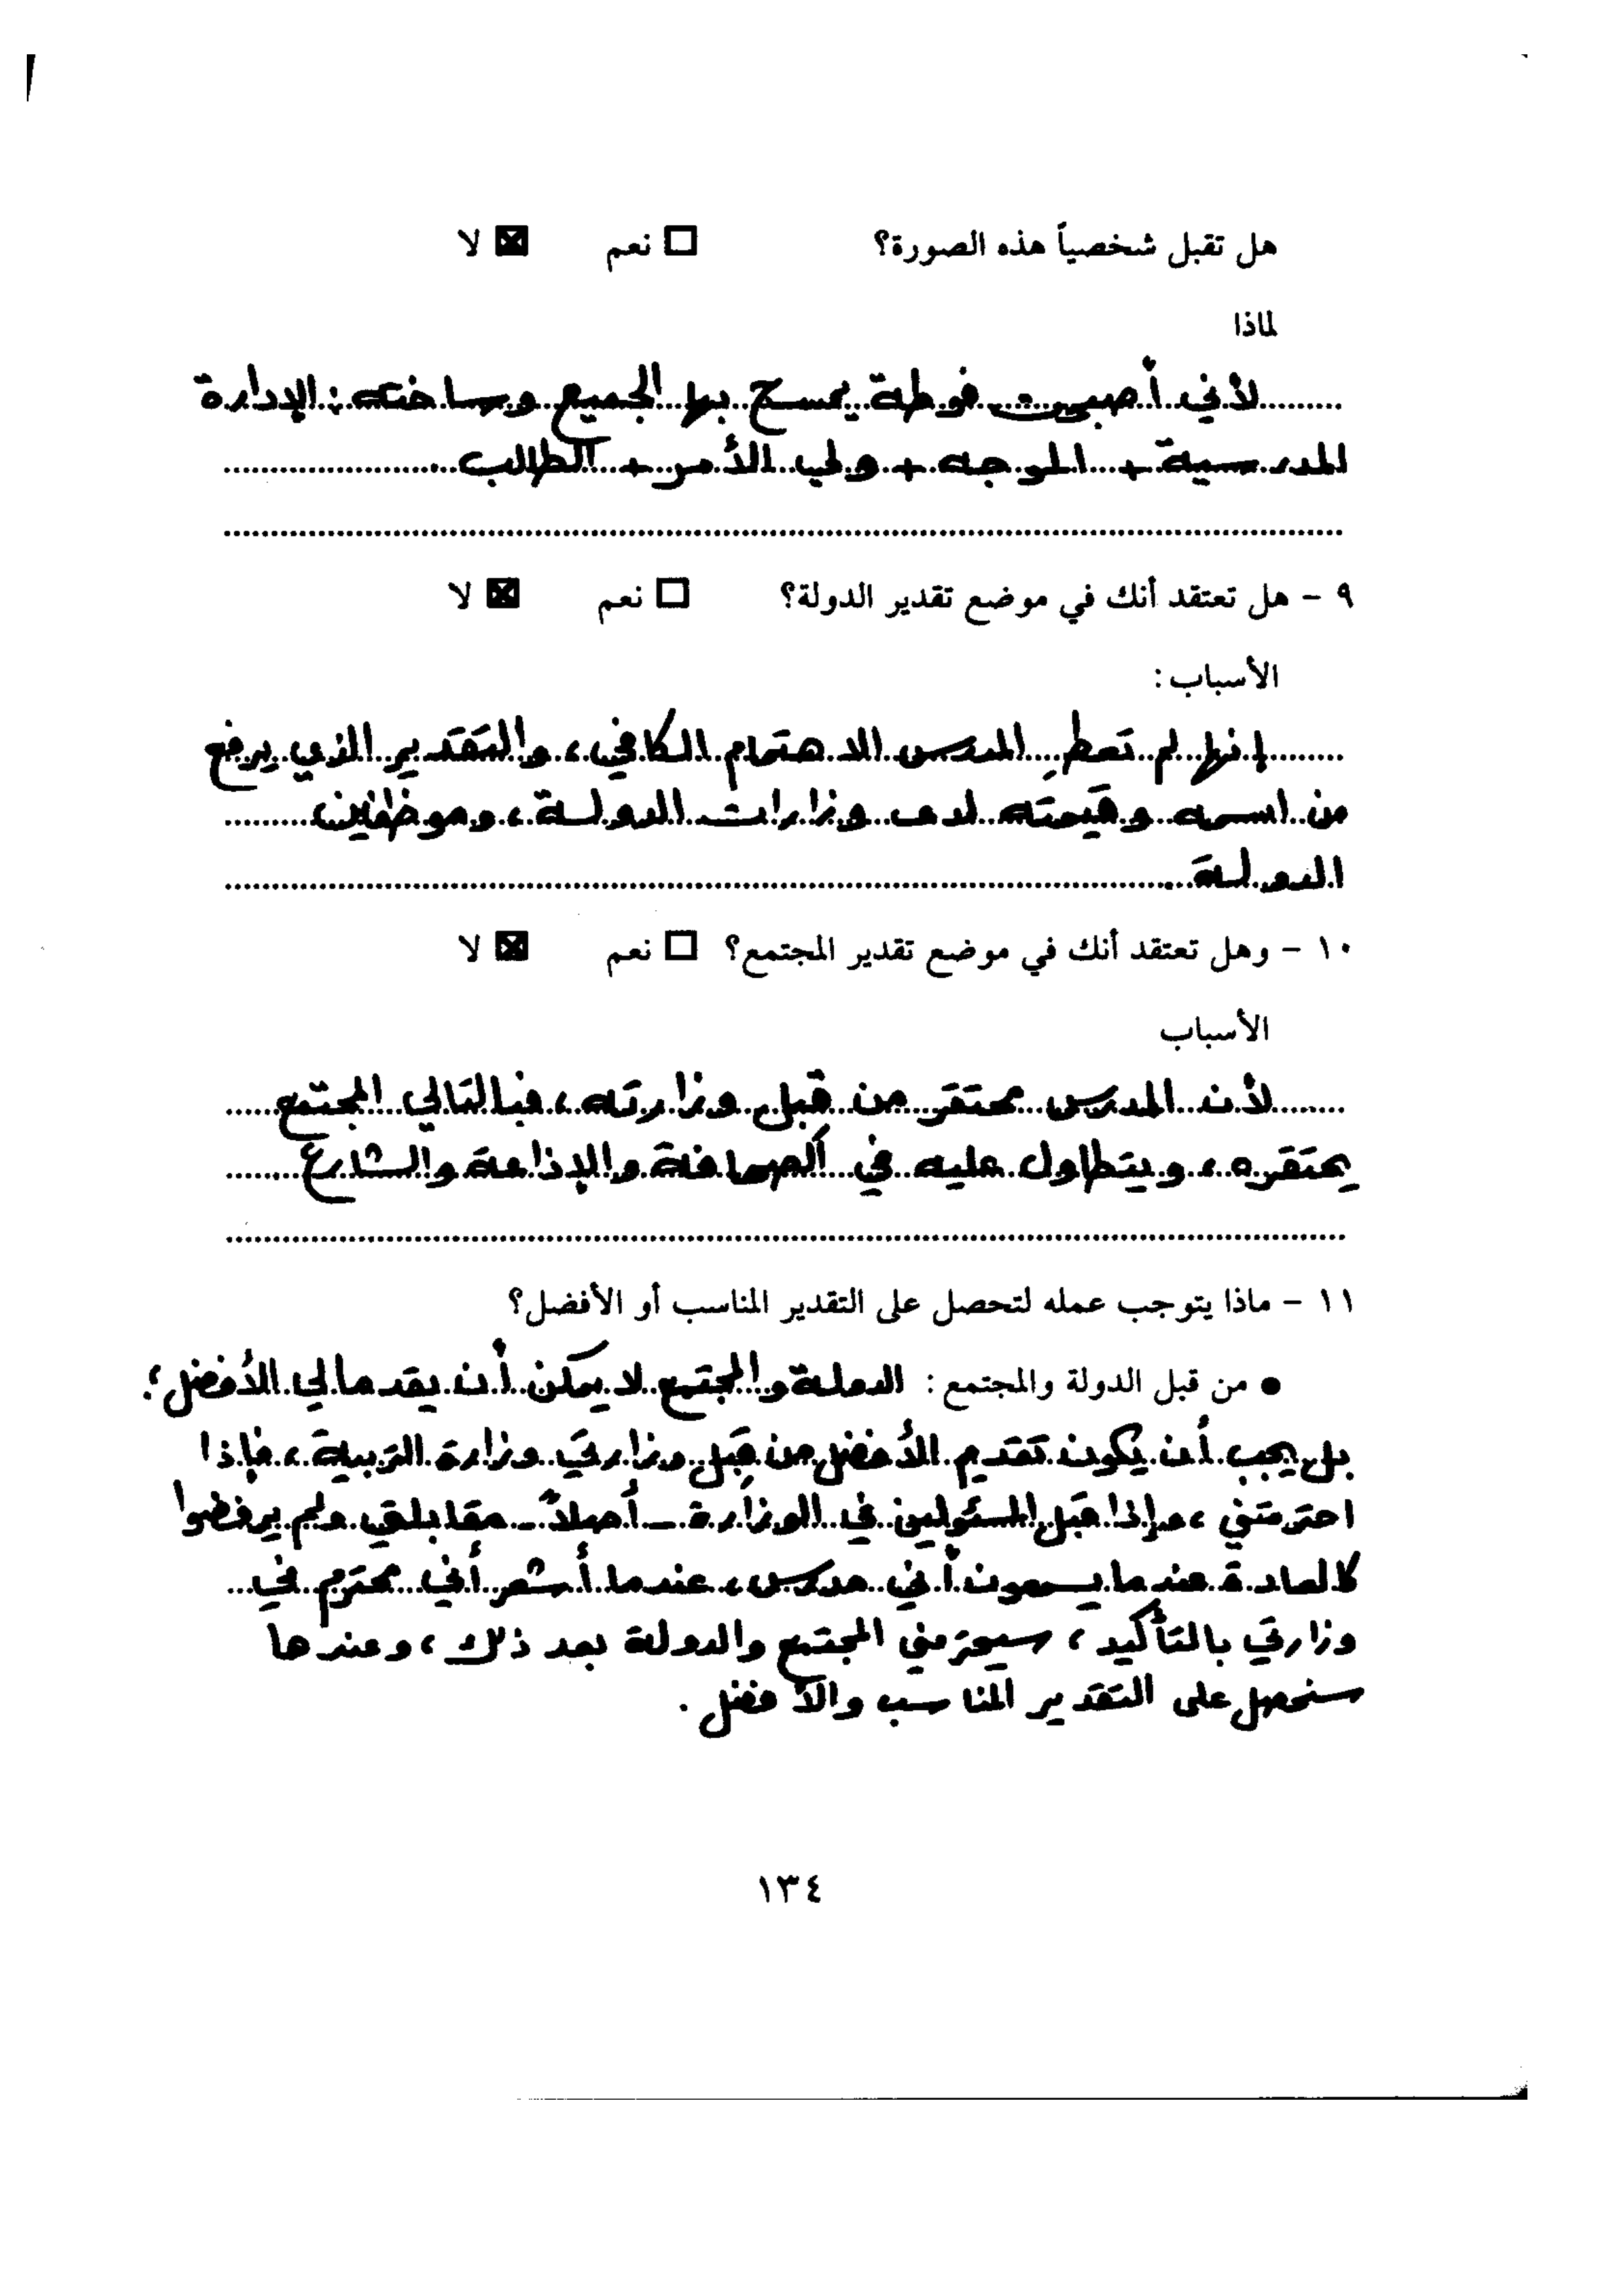 هل تقبل شخصياً هذه الصورة؟ □ نعم ☒ لا
لماذا
لأني أصبحت فوطة يمسح بها الجميع وساخته: الإدارة
المدرسية + الموجه + ولي الأمر + الطالب
٩ - هل تعتقد أنك في موضع تقدير الدولة؟ □ نعم ☒ لا
الأسباب:
إنها لم تعطِ المدرس الاهتمام الكافي، والتقدير الذي يرفع
من اسمه وقيمته لدى وزارات الدولة، وموظفين
الدولة
١٠ - وهل تعتقد أنك في موضع تقدير المجتمع؟ □ نعم ☒ لا
الأسباب
لأن المدرس محتقر من قبل وزارته، فبالتالي المجتمع
يحتقره، ويتطاول عليه في الصحافة والإذاعة والشارع
١١ - ماذا يتوجب عمله لتحصل على التقدير المناسب أو الأفضل؟
● من قبل الدولة والمجتمع: الدولة والمجتمع لا يمكن أن يقدما لي الأفضل؛
بل يجب أن يكون تقديم الأفضل من قِبل وزارتي وزارة التربية، فإذا
احترمتني، وإذا قبل المسئولين في الوزارة - أصلاً - مقابلتي ولم يرفضوا
كالعادة عندما يسمعون أني مدرس، عندما أشعر أني محترم في
وزارتي بالتأكيد، سيحترمني المجتمع والدولة بعد ذلك، وعندها
سنحصل على التقدير المناسب والأفضل.
١٣٤